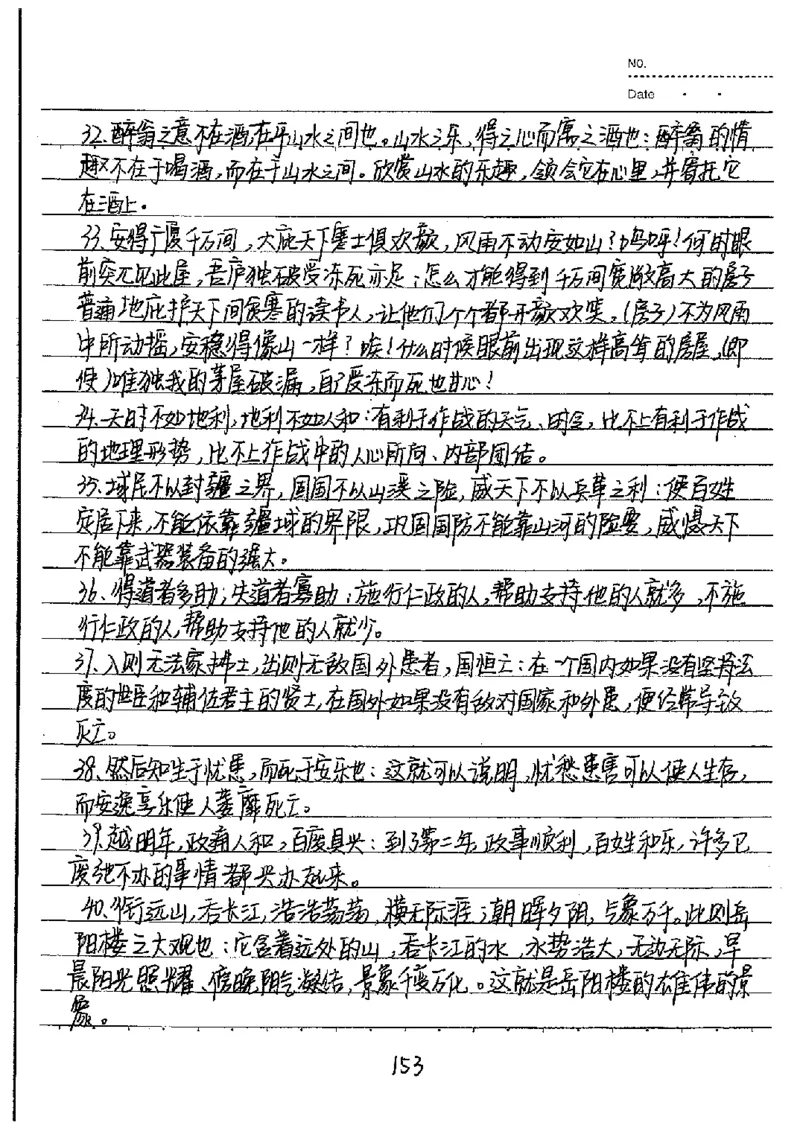 NO.
Date
32.醉翁之意不在酒,在乎山水之间也。山水之乐,得之心而寓之酒也:醉翁的情
趣不在于喝酒,而在于山水之间。欣赏山水的乐趣,领会它在心里,并寄托它
在酒上。
33.安得广厦千万间,大庇天下寒士俱欢颜,风雨不动安如山?呜呼!何时眼
前突兀见此屋,吾庐独破受冻死亦足:怎么才能得到千万间宽敞高大的房子
普遍地庇护天下间贫寒的读书人,让他们个个都开颜欢笑。(房子)不为风雨
中所动摇,安稳得像山一样?唉!什么时候眼前出现这样高耸的房屋,(即
使)唯独我的茅屋破漏,自己受冻而死也甘心!
34.天时不如地利,地利不如人和:有利于作战的天气、时令,比不上有利于作战
的地理形势,比不上作战中的人心所向、内部团结。
35.域民不以封疆之界,固国不以山溪之险,威天下不以兵革之利:使百姓
定居下来,不能依靠疆域的界限,巩固国防不能靠山河的险要,威慑天下
不能靠武器装备的强大。
36.得道者多助,失道者寡助:施行仁政的人,帮助支持他的人就多,不施
行仁政的人,帮助支持他的人就少。
37.入则无法家拂士,出则无敌国外患者,国恒亡:在一个国内如果没有坚持法
度的世臣和辅佐君主的贤士,在国外如果没有敌对国家和外患,便经常导致
灭亡。
38.然后知生于忧患,而死于安乐也:这就可以说明,忧愁患害可以使人生存,
而安逸享乐使人萎靡死亡。
39.越明年,政通人和,百废具兴:到了第二年,政事顺利,百姓和乐,许多已
废弛不办的事情都兴办起来。
40.衔远山,吞长江,浩浩荡荡,横无际涯;朝晖夕阴,气象万千。此则岳
阳楼之大观也:它含着远处的山,吞长江的水,水势浩大,无边无际,早
晨阳光照耀、傍晚阴气凝结,景象千变万化。这就是岳阳楼的雄伟的景
象。
153